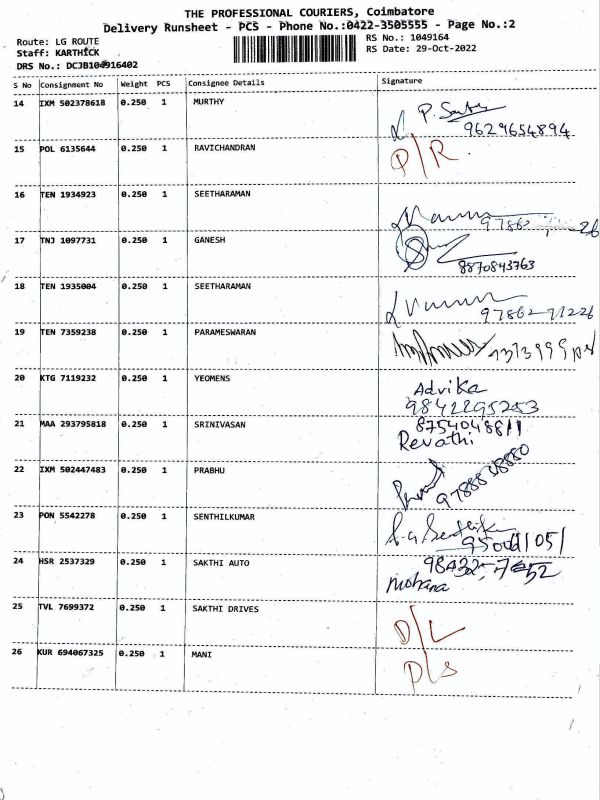 THE PROFESSIONAL COURIERS, Coimbatore
Delivery Runsheet - PCS - Phone No.:0422-3505555 - Page No.:2
Route: LG ROUTE
RS No.: 1049164
Staff: KARTHICK
RS Date: 29-Oct-2022
DRS No.: DCJB104916402
S No Consignment No Weight PCS Consignee Details Signature
14 IXM 502378618 0.250 1 MURTHY
9629654894
15 POL 6135644 0.250 1 RAVICHANDRAN P/R.
16 TEN 1934923 0.250 1 SEETHARAMAN
17 TNJ 1097731 0.250 1 GANESH
8870843763
18 TEN 1935004 0.250 1 SEETHARAMAN
19 TEN 7359238 0.250 1 PARAMESWARAN
20 KTG 7119232 0.250 1 YEOMENS Advika
9842295253
21 MAA 293795818 0.250 1 SRINIVASAN 8754048811
Revathi
22 IXM 502447483 0.250 1 PRABHU
9788838880
23 PON 5542278 0.250 1 SENTHILKUMAR
24 HSR 2537329 0.250 1 SAKTHI AUTO
Mohana
25 TVL 7699372 0.250 1 SAKTHI DRIVES D/L
26 KUR 694067325 0.250 1 MANI D/S